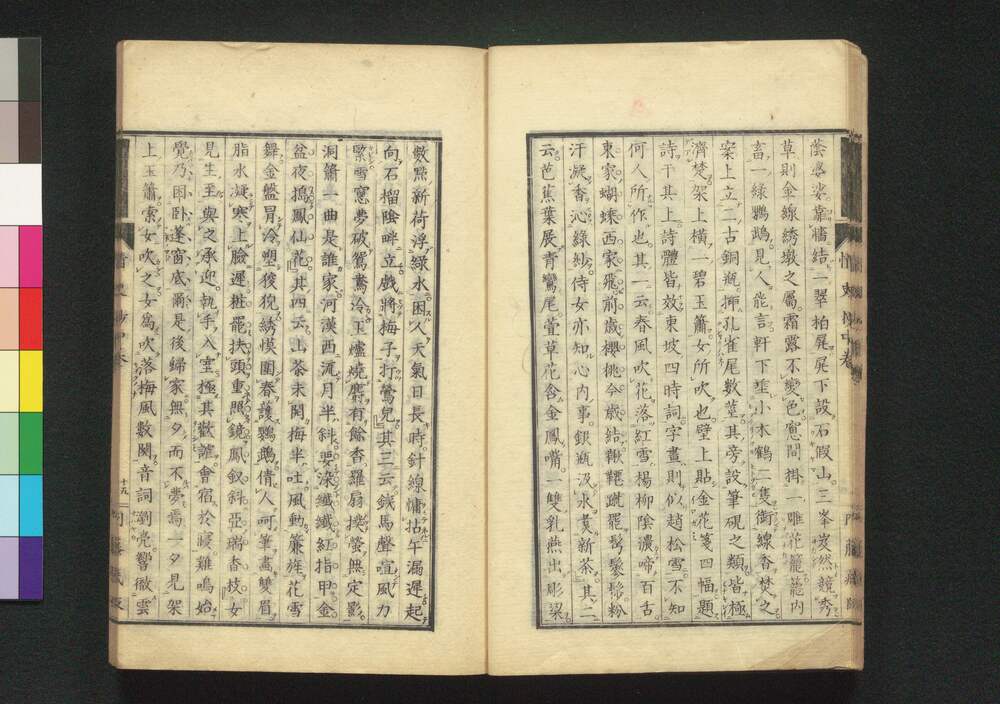 陰婆娑靠牆結一翠柏屏屏下設石假山三峯岌然競秀
草則金線綉墩之屬霜露不變色窓間掛一雕花籠籠内
畜一緑鸚鵡見人能言軒下垂小木鶴二隻銜線香焚之
案上立二古銅瓶挿孔雀尾數莖其旁設筆硯之類皆極
濟楚架上橫一碧玉簫女所吹也壁上貼金花箋四幅題
詩于其上詩體皆效東坡四時詞字畫則似趙松雪不知
何人所作也其一云春風吹花落紅雪楊柳陰濃啼百舌
東家蝴蝶西家飛前歳櫻桃今歳結鞦韆蹴罷髩鬖髿粉
汗凝香沁綠紗侍女亦知心内事銀瓶汲水煑新茶其二
云芭蕉葉展青鸞尾萱草花含金鳳嘴一雙乳燕出彫梁
數點新荷浮綠水困人天氣日長時針線慵拈午漏遲起
向石榴陰畔立戲將梅子打鶯兒其三云鐵馬聲喧風力
緊雪窓夢破鴛鴦冷玉爐燒麝有餘香羅扇撲螢無定影
洞簫一曲是誰家河漢西流月半斜要染纖纖紅指甲金
盆夜搗鳳仙花其四云山茶未開梅半吐風動簾旌花雪
舞金盤冐冷塑狻猊綉幙圍春護鸚鵡倩人呵筆畫雙眉
脂水凝寒上臉遲粧罷扶頭重照鏡鳳釵斜亞瑞香枝女
見生至與之承迎執手入室極其歡謔會宿於寢雞鳴始
覺乃困卧蓬窗底爾是後歸家無夕而不夢焉一夕見架
上玉簫索女吹之女爲吹落梅風數闋音詞瀏亮響徹雲
十五